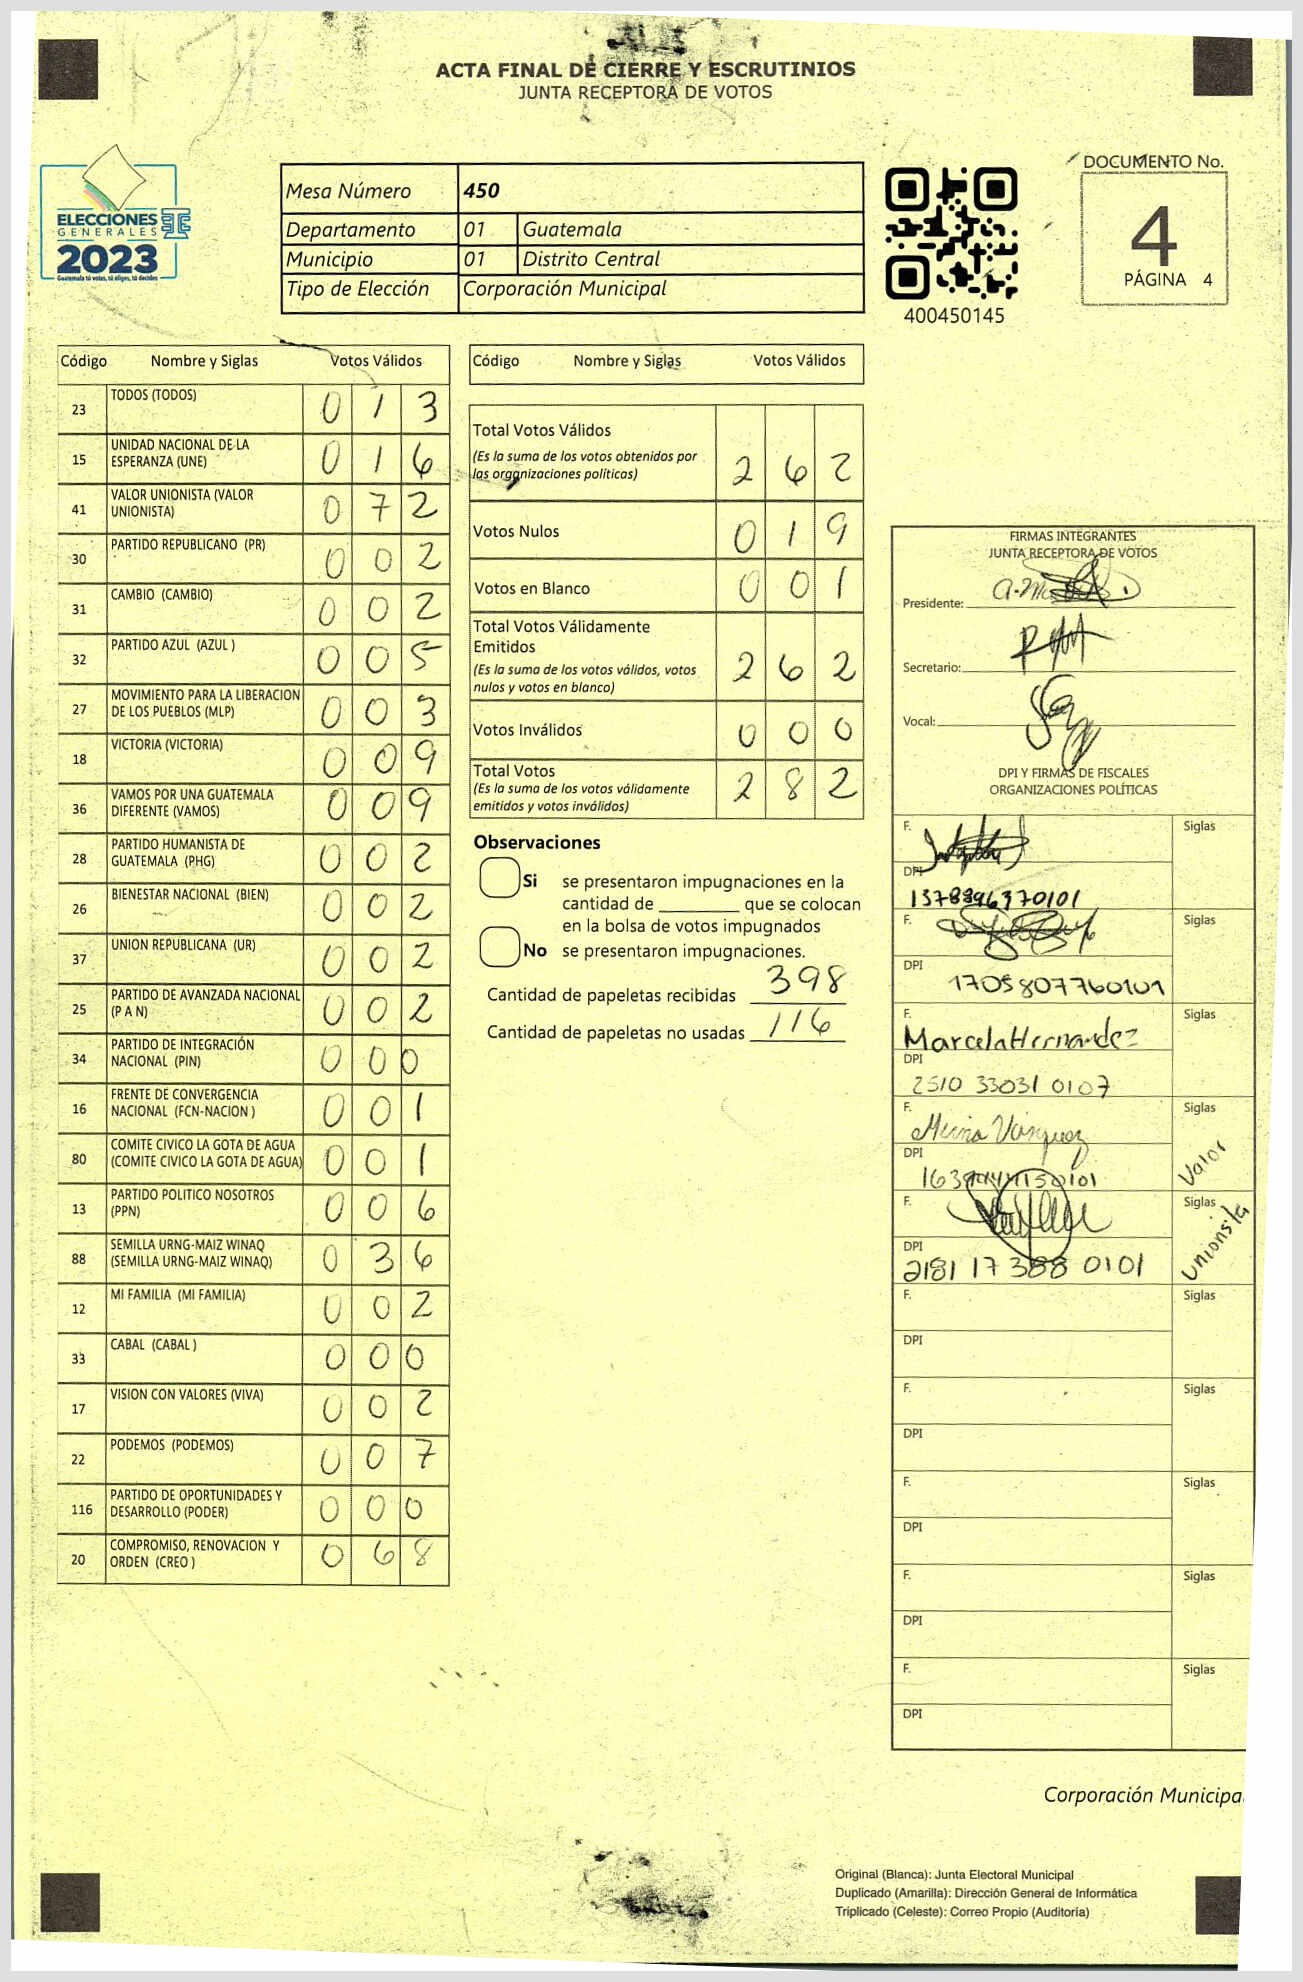 ACTA FINAL DE CIERRE Y ESCRUTINIOS
JUNTA RECEPTORA DE VOTOS
ELECCIONES
GENERALES
2023
Guatemala tú votas, tú eliges, tú decides
Mesa Número 450
Departamento 01 Guatemala
Municipio 01 Distrito Central
Tipo de Elección Corporación Municipal
400450145
DOCUMENTO No.
4
PÁGINA 4
Código Nombre y Siglas Votos Válidos
23 TODOS (TODOS) 0 1 3
15 UNIDAD NACIONAL DE LA ESPERANZA (UNE) 0 1 6
41 VALOR UNIONISTA (VALOR UNIONISTA) 0 7 2
30 PARTIDO REPUBLICANO (PR) 0 0 2
31 CAMBIO (CAMBIO) 0 0 2
32 PARTIDO AZUL (AZUL ) 0 0 5
27 MOVIMIENTO PARA LA LIBERACION DE LOS PUEBLOS (MLP) 0 0 3
18 VICTORIA (VICTORIA) 0 0 9
36 VAMOS POR UNA GUATEMALA DIFERENTE (VAMOS) 0 0 9
28 PARTIDO HUMANISTA DE GUATEMALA (PHG) 0 0 2
26 BIENESTAR NACIONAL (BIEN) 0 0 2
37 UNION REPUBLICANA (UR) 0 0 2
25 PARTIDO DE AVANZADA NACIONAL (P A N) 0 0 2
34 PARTIDO DE INTEGRACIÓN NACIONAL (PIN) 0 0 0
16 FRENTE DE CONVERGENCIA NACIONAL (FCN-NACION ) 0 0 1
80 COMITE CIVICO LA GOTA DE AGUA (COMITE CIVICO LA GOTA DE AGUA) 0 0 1
13 PARTIDO POLITICO NOSOTROS (PPN) 0 0 6
88 SEMILLA URNG-MAIZ WINAQ (SEMILLA URNG-MAIZ WINAQ) 0 3 6
12 MI FAMILIA (MI FAMILIA) 0 0 2
33 CABAL (CABAL ) 0 0 0
17 VISION CON VALORES (VIVA) 0 0 2
22 PODEMOS (PODEMOS) 0 0 7
116 PARTIDO DE OPORTUNIDADES Y DESARROLLO (PODER) 0 0 0
20 COMPROMISO, RENOVACION Y ORDEN (CREO ) 0 6 8
Código Nombre y Siglas Votos Válidos
Total Votos Válidos 2 6 2
(Es la suma de los votos obtenidos por
las organizaciones políticas)
Votos Nulos 0 1 9
Votos en Blanco 0 0 1
Total Votos Válidamente
Emitidos 2 6 2
(Es la suma de los votos válidos, votos
nulos y votos en blanco)
Votos Inválidos 0 0 0
Total Votos 2 8 2
(Es la suma de los votos válidamente
emitidos y votos inválidos)
Observaciones
Si se presentaron impugnaciones en la
cantidad de ________ que se colocan
en la bolsa de votos impugnados
No se presentaron impugnaciones.
Cantidad de papeletas recibidas 398
Cantidad de papeletas no usadas 116
FIRMAS INTEGRANTES
JUNTA RECEPTORA DE VOTOS
Presidente:
Secretario:
Vocal:
DPI Y FIRMAS DE FISCALES
ORGANIZACIONES POLÍTICAS
F. Siglas
DPI
F. Siglas
DPI 1705807760101
F. Marcela Hernandez Siglas
DPI 2510 33031 0107
F. Siglas
DPI Valor
F. Siglas Unionista
DPI 2181 17388 0101
F. Siglas
DPI
F. Siglas
DPI
F. Siglas
DPI
F. Siglas
DPI
F. Siglas
DPI
Corporación Municipa
Original (Blanca): Junta Electoral Municipal
Duplicado (Amarilla): Dirección General de Informática
Triplicado (Celeste): Correo Propio (Auditoría)